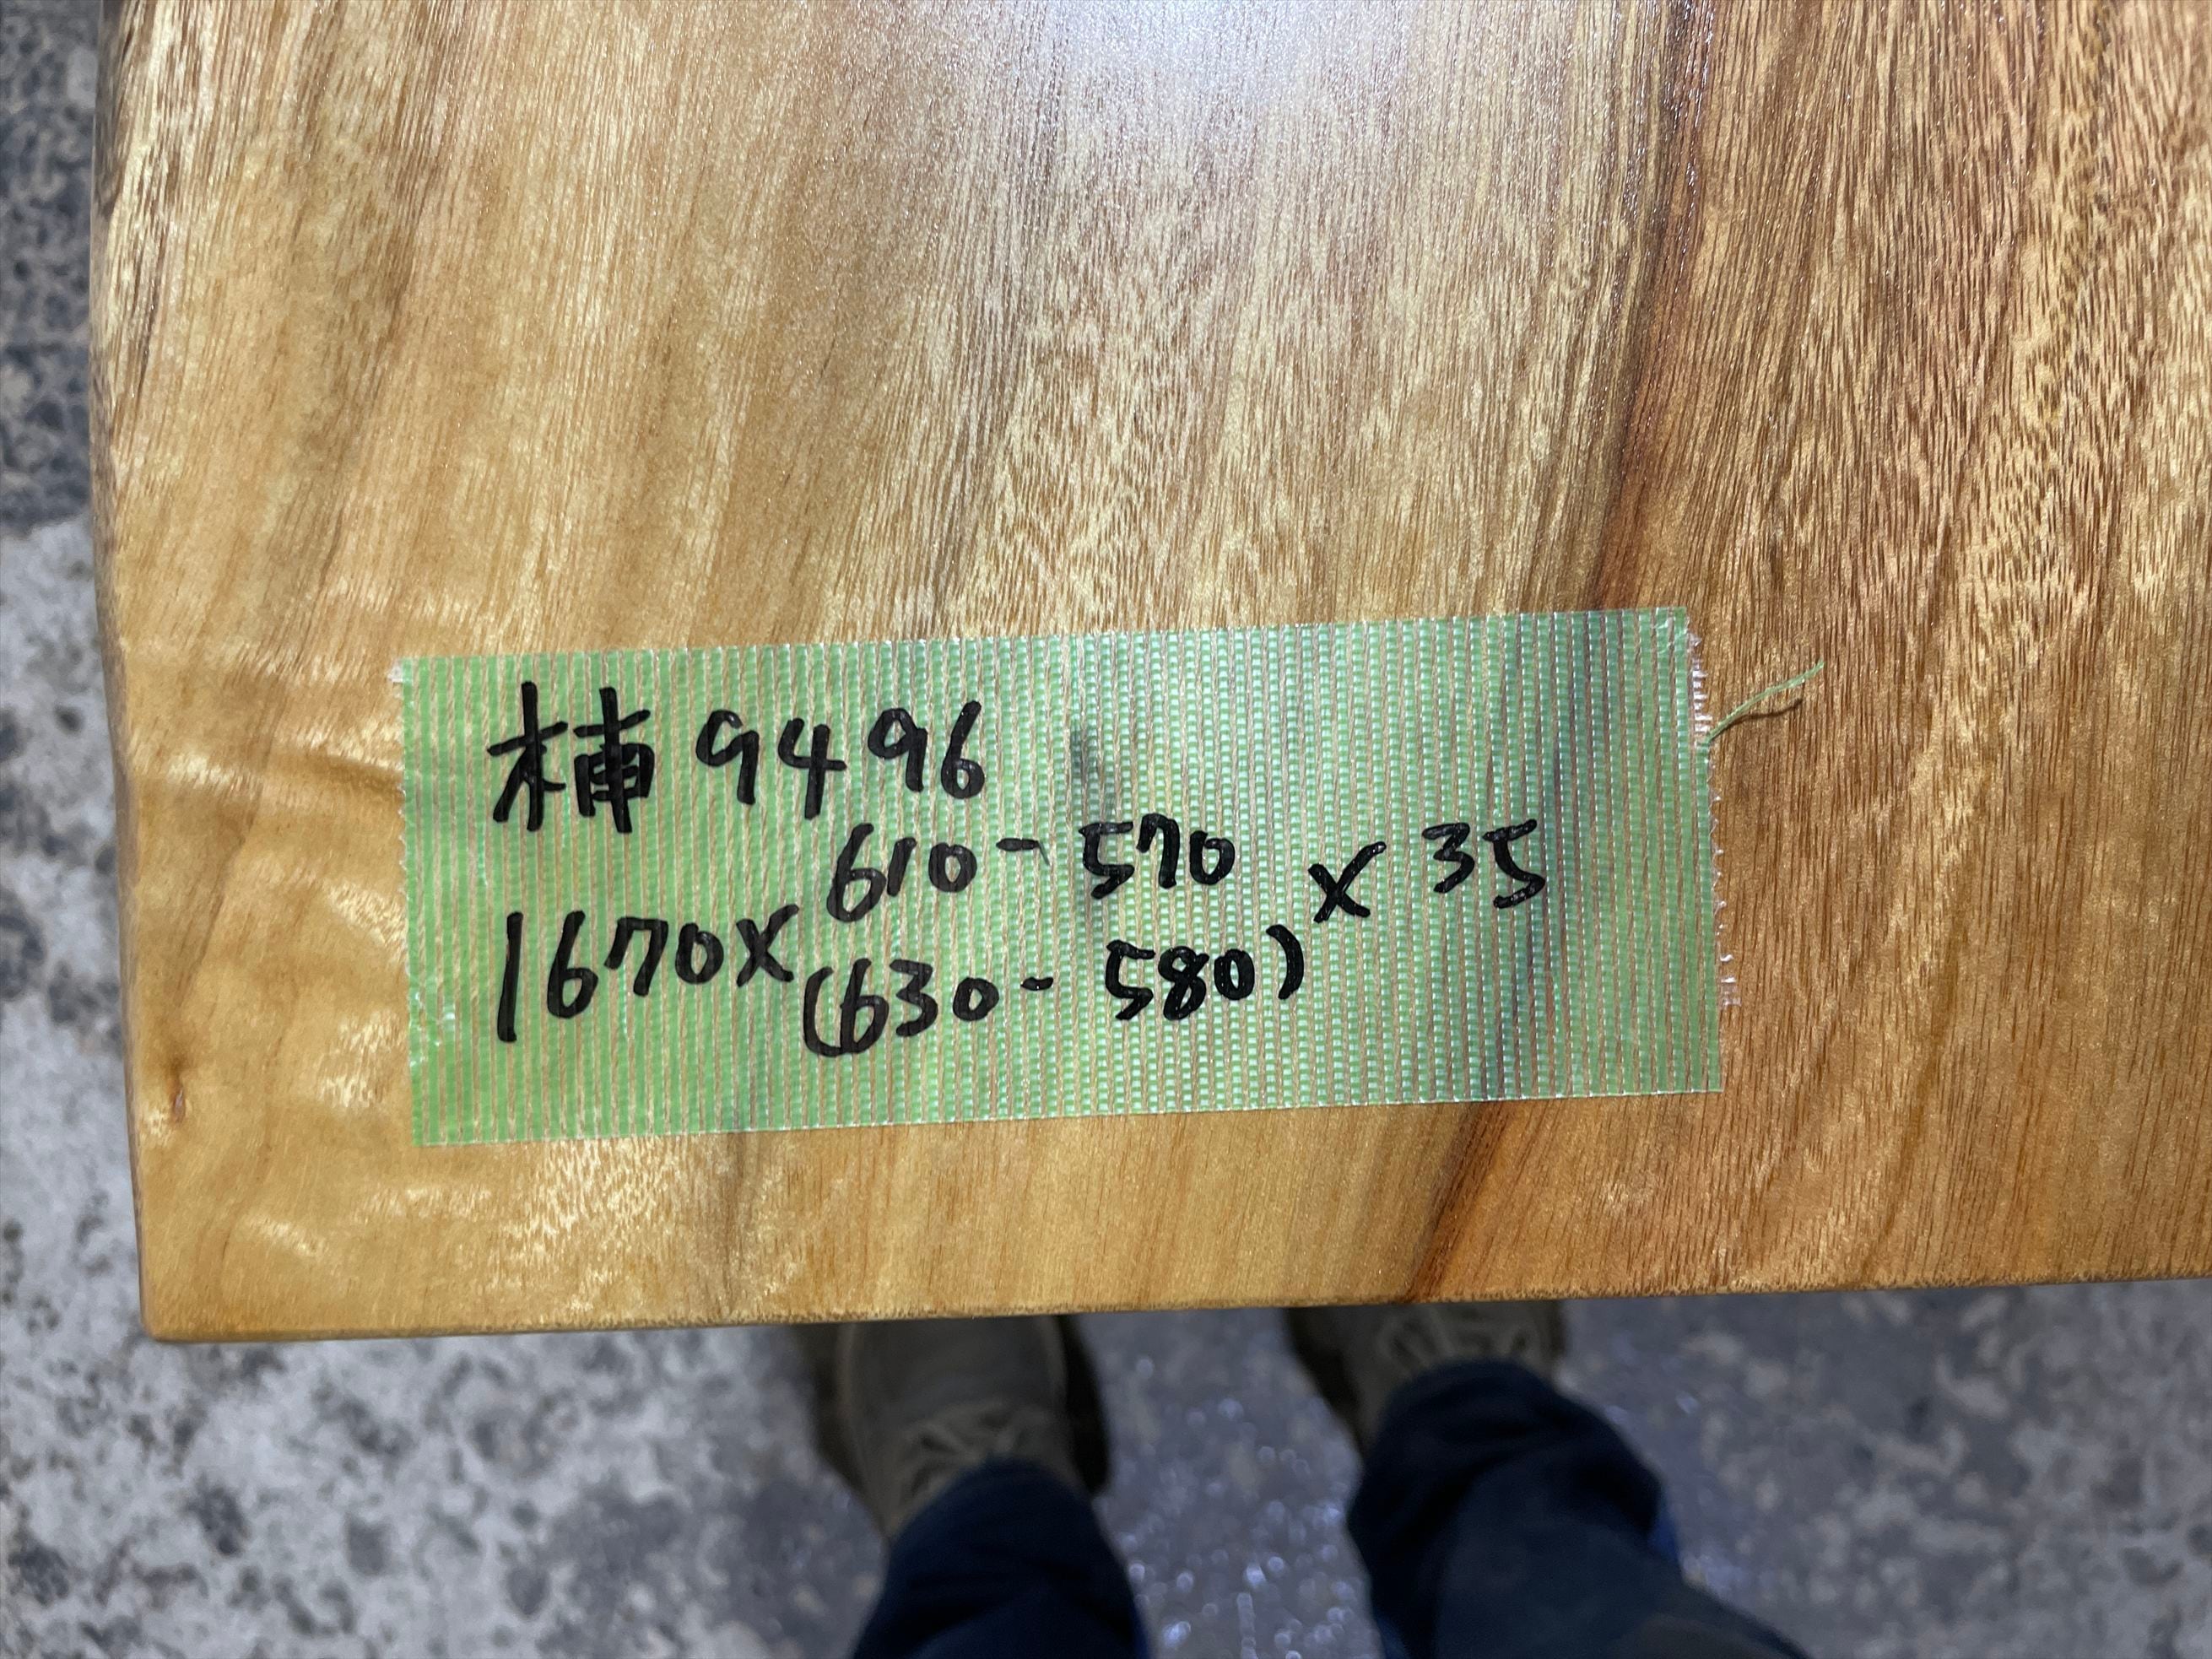 楠 9496
1670×610-570×35
(630-580)